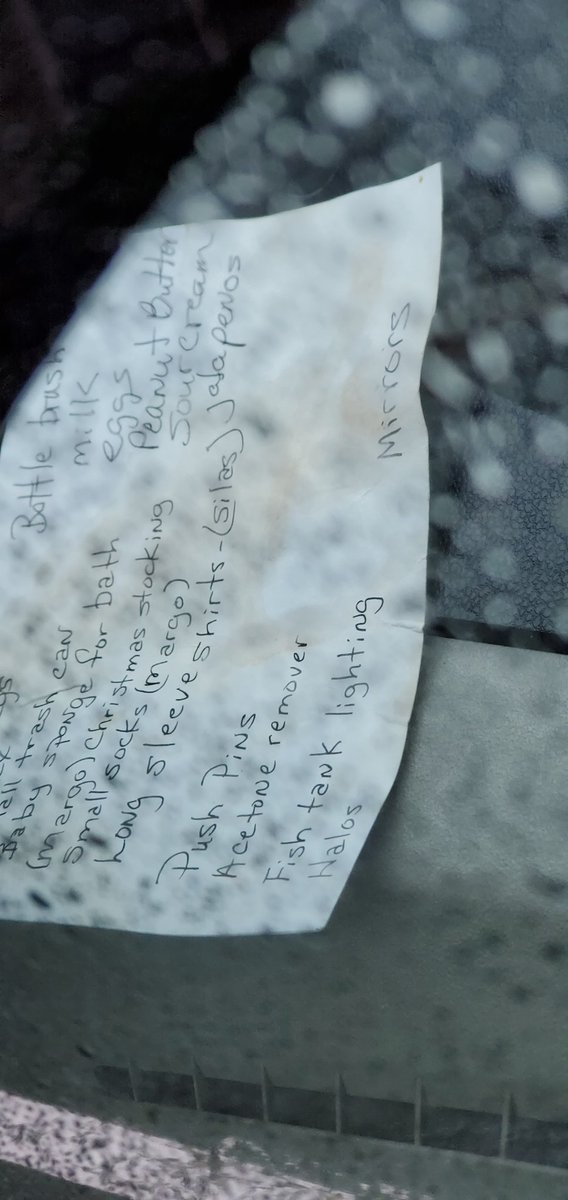 all trash can
Baby sponge for bath
(margo) Christmas stocking
Small socks (margo)
Long sleeve shirts-(silas)
Push Pins
Acetone remover
Fish tank lighting
Halos
Bottle brush
milk
eggs
Peanut Butter
Sour cream
Jalapenos
Mirrors